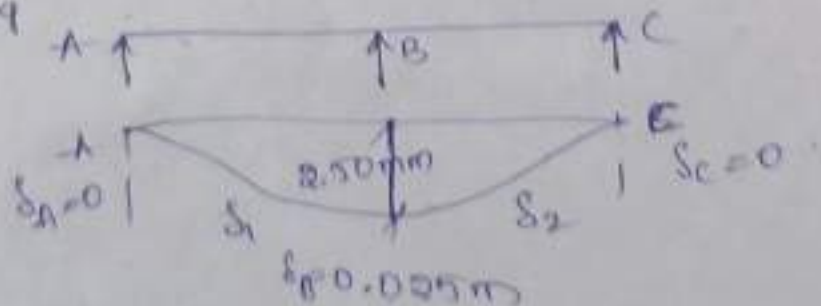 A B C
A C
2.50mm
δA=0 δ1 δ2 δC=0
δB=0.025m